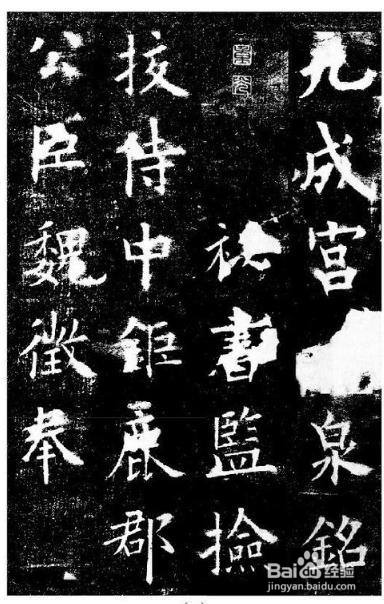 九成宮泉銘
秘書監撿
挍侍中鉅鹿郡
公臣魏徵奉
Baidu经验
jingyan.baidu.com